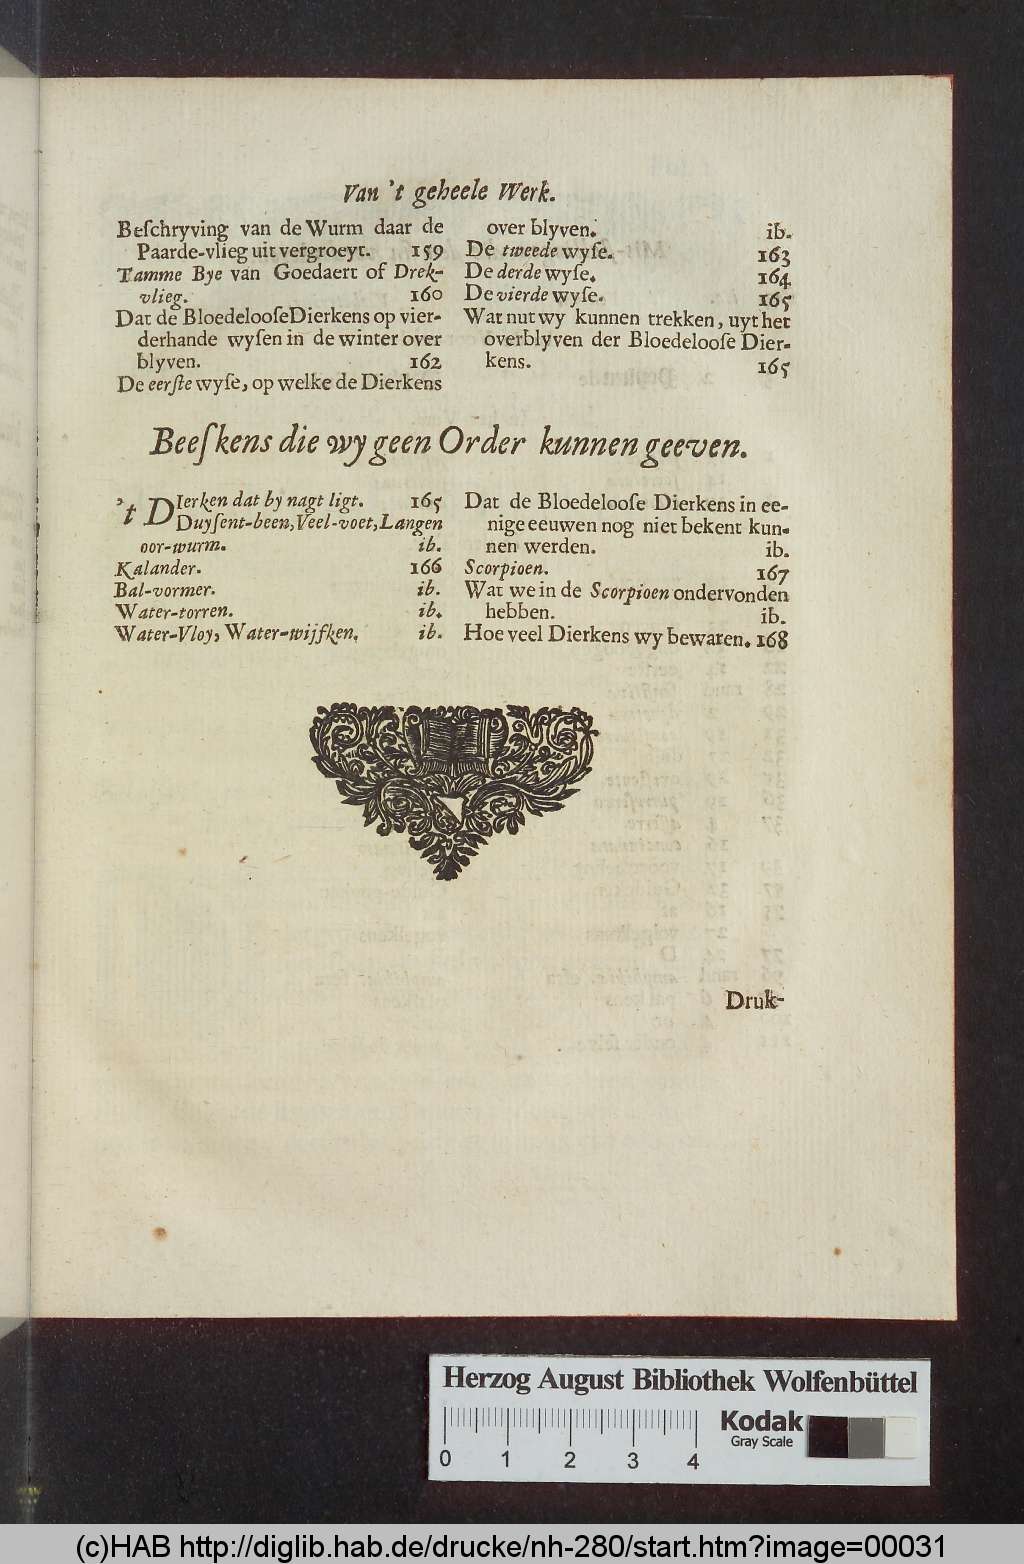 Van 't geheele Werk.
Beſchryving van de Wurm daar de
Paarde-vlieg uit vergroeyt. 159
Tamme Bye van Goedaert of Drek-
vlieg. 160
Dat de Bloedelooſe Dierkens op vier-
derhande wyſen in de winter over
blyven. 162
De eerſte wyſe, op welke de Dierkens
over blyven. ib.
De tweede wyſe. 163
De derde wyſe. 164
De vierde wyſe. 165
Wat nut wy kunnen trekken, uyt het
overblyven der Bloedelooſe Dier-
kens. 165
Beeſkens die wy geen Order kunnen geeven.
't DIerken dat by nagt ligt. 165
Duyſent-been, Veel-voet, Langen
oor-wurm. ib.
Kalander. 166
Bal-vormer. ib.
Water-torren. ib.
Water-Vloy, Water-wijfken. ib.
Dat de Bloedelooſe Dierkens in ee-
nige eeuwen nog niet bekent kun-
nen werden. ib.
Scorpioen. 167
Wat we in de Scorpioen ondervonden
hebben. ib.
Hoe veel Dierkens wy bewaren. 168
Druk-
Herzog August Bibliothek Wolfenbüttel
Kodak
Gray Scale
0 1 2 3 4
(c)HAB http://diglib.hab.de/drucke/nh-280/start.htm?image=00031